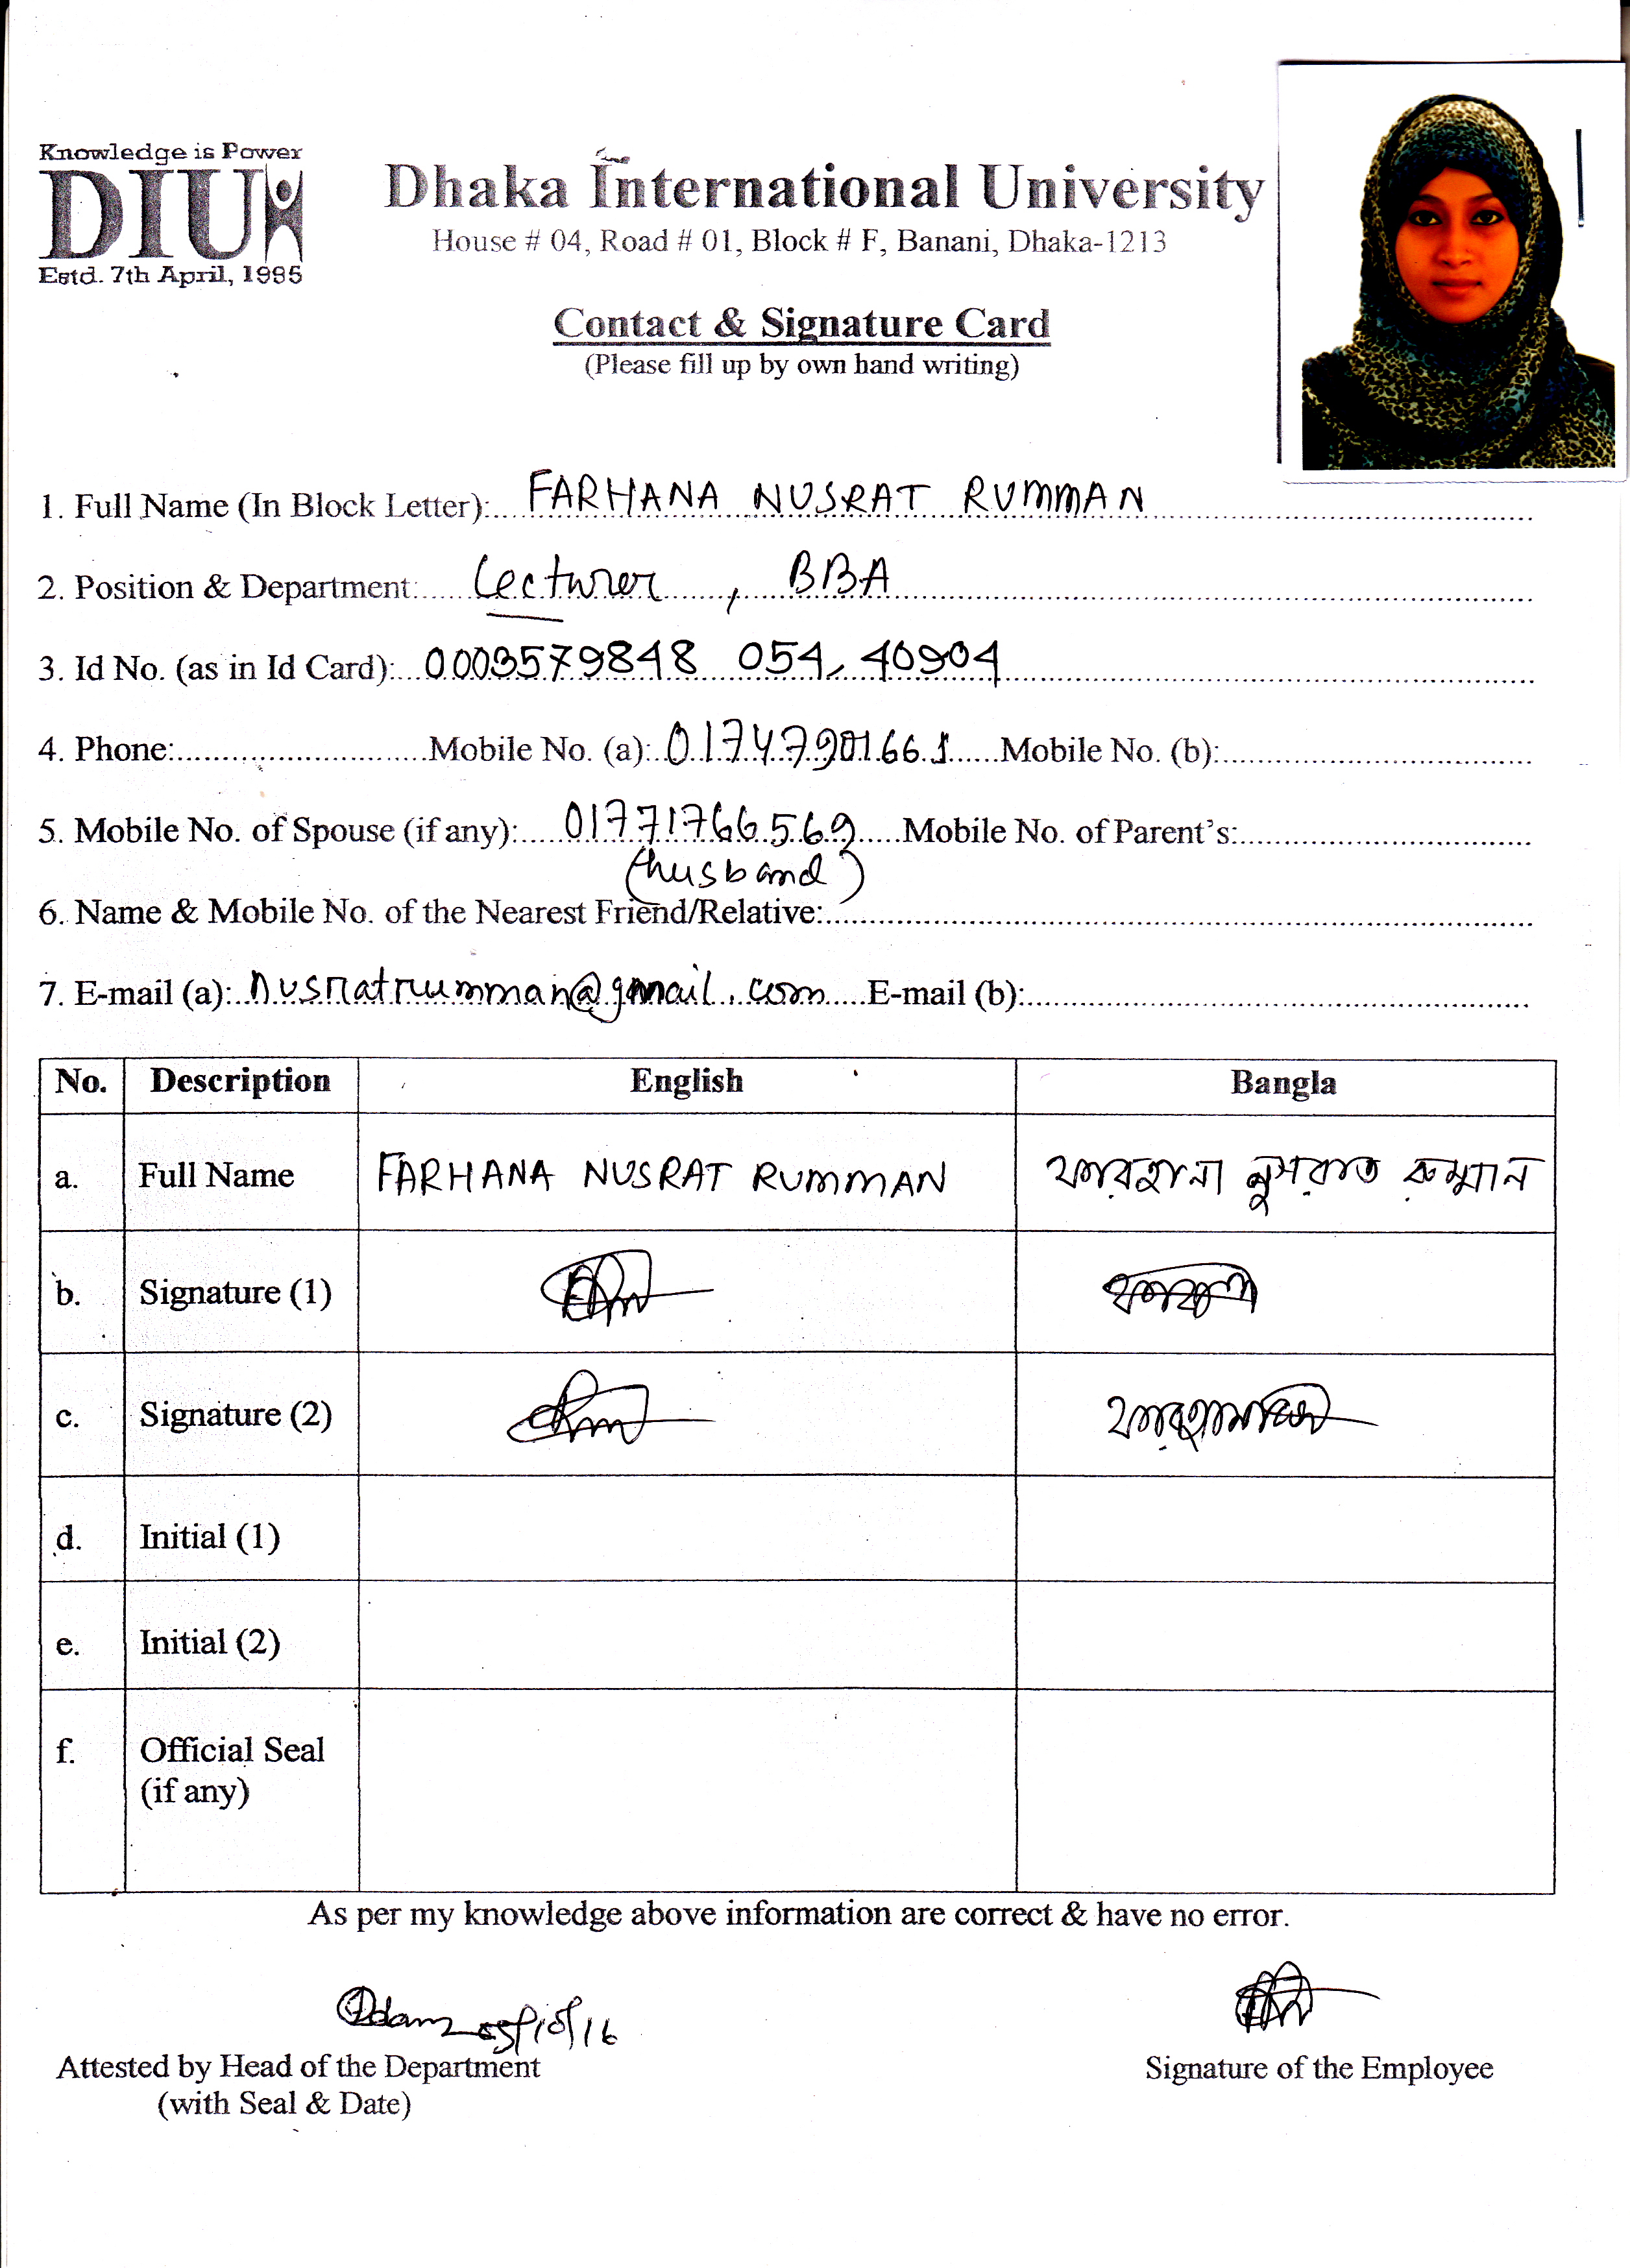 Knowledge is Power
DIU
Estd. 7th April, 1995
Dhaka International University
House # 04, Road # 01, Block # F, Banani, Dhaka-1213
Contact & Signature Card
(Please fill up by own hand writing)
1. Full Name (In Block Letter): FARHANA NUSRAT RUMMAN
2. Position & Department: Lecturer, BBA
3. Id No. (as in Id Card): 0003579848 054, 40904
4. Phone: Mobile No. (a): 01747901661 Mobile No. (b):
5. Mobile No. of Spouse (if any): 01771766569 Mobile No. of Parent's:
(husband)
6. Name & Mobile No. of the Nearest Friend/Relative:
7. E-mail (a): nusratrumman@gmail.com E-mail (b):
No. Description English Bangla
a. Full Name FARHANA NUSRAT RUMMAN ফারহানা নুসরাত রুম্মান
b. Signature (1)
c. Signature (2)
d. Initial (1)
e. Initial (2)
f. Official Seal
(if any)
As per my knowledge above information are correct & have no error.
Attested by Head of the Department Signature of the Employee
(with Seal & Date)